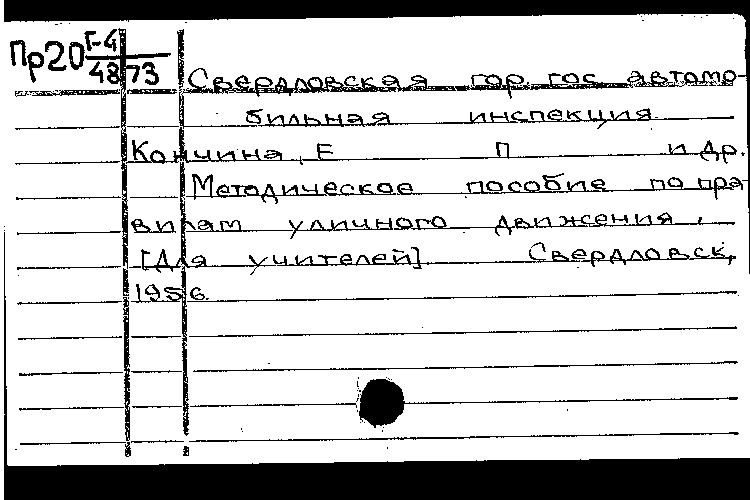 Пр20 Г-4
4873
Свердловская гор. гос. автомо-
бильная инспекция.
Кончина, Е П и др.
Методическое пособие по пра-
вилам уличного движения.
[Для учителей] Свердловск,
1956.